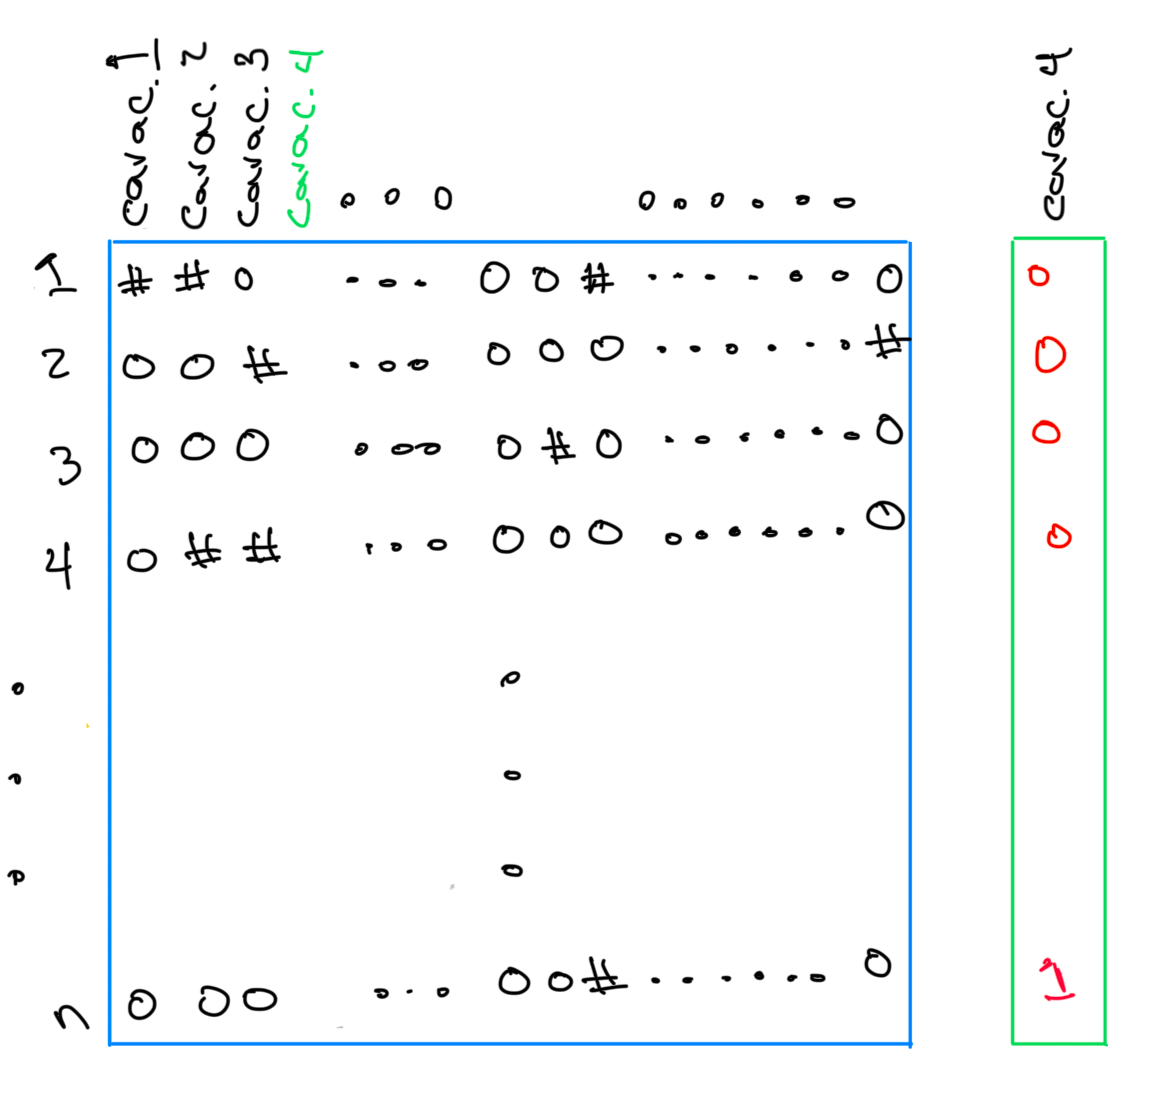 covac.1 covac.2 covac.3 covac.4 . . . . . . . . . covac.4
1 # # 0 . . . 0 0 # . . . . . . 0 0
2 0 0 # . . . 0 0 0 . . . . . . # 0
3 0 0 0 . . . 0 # 0 . . . . . . 0 0
4 0 # # . . . 0 0 0 . . . . . . 0 0
. .
. .
. .
n 0 0 0 . . . 0 0 # . . . . . . 0 1